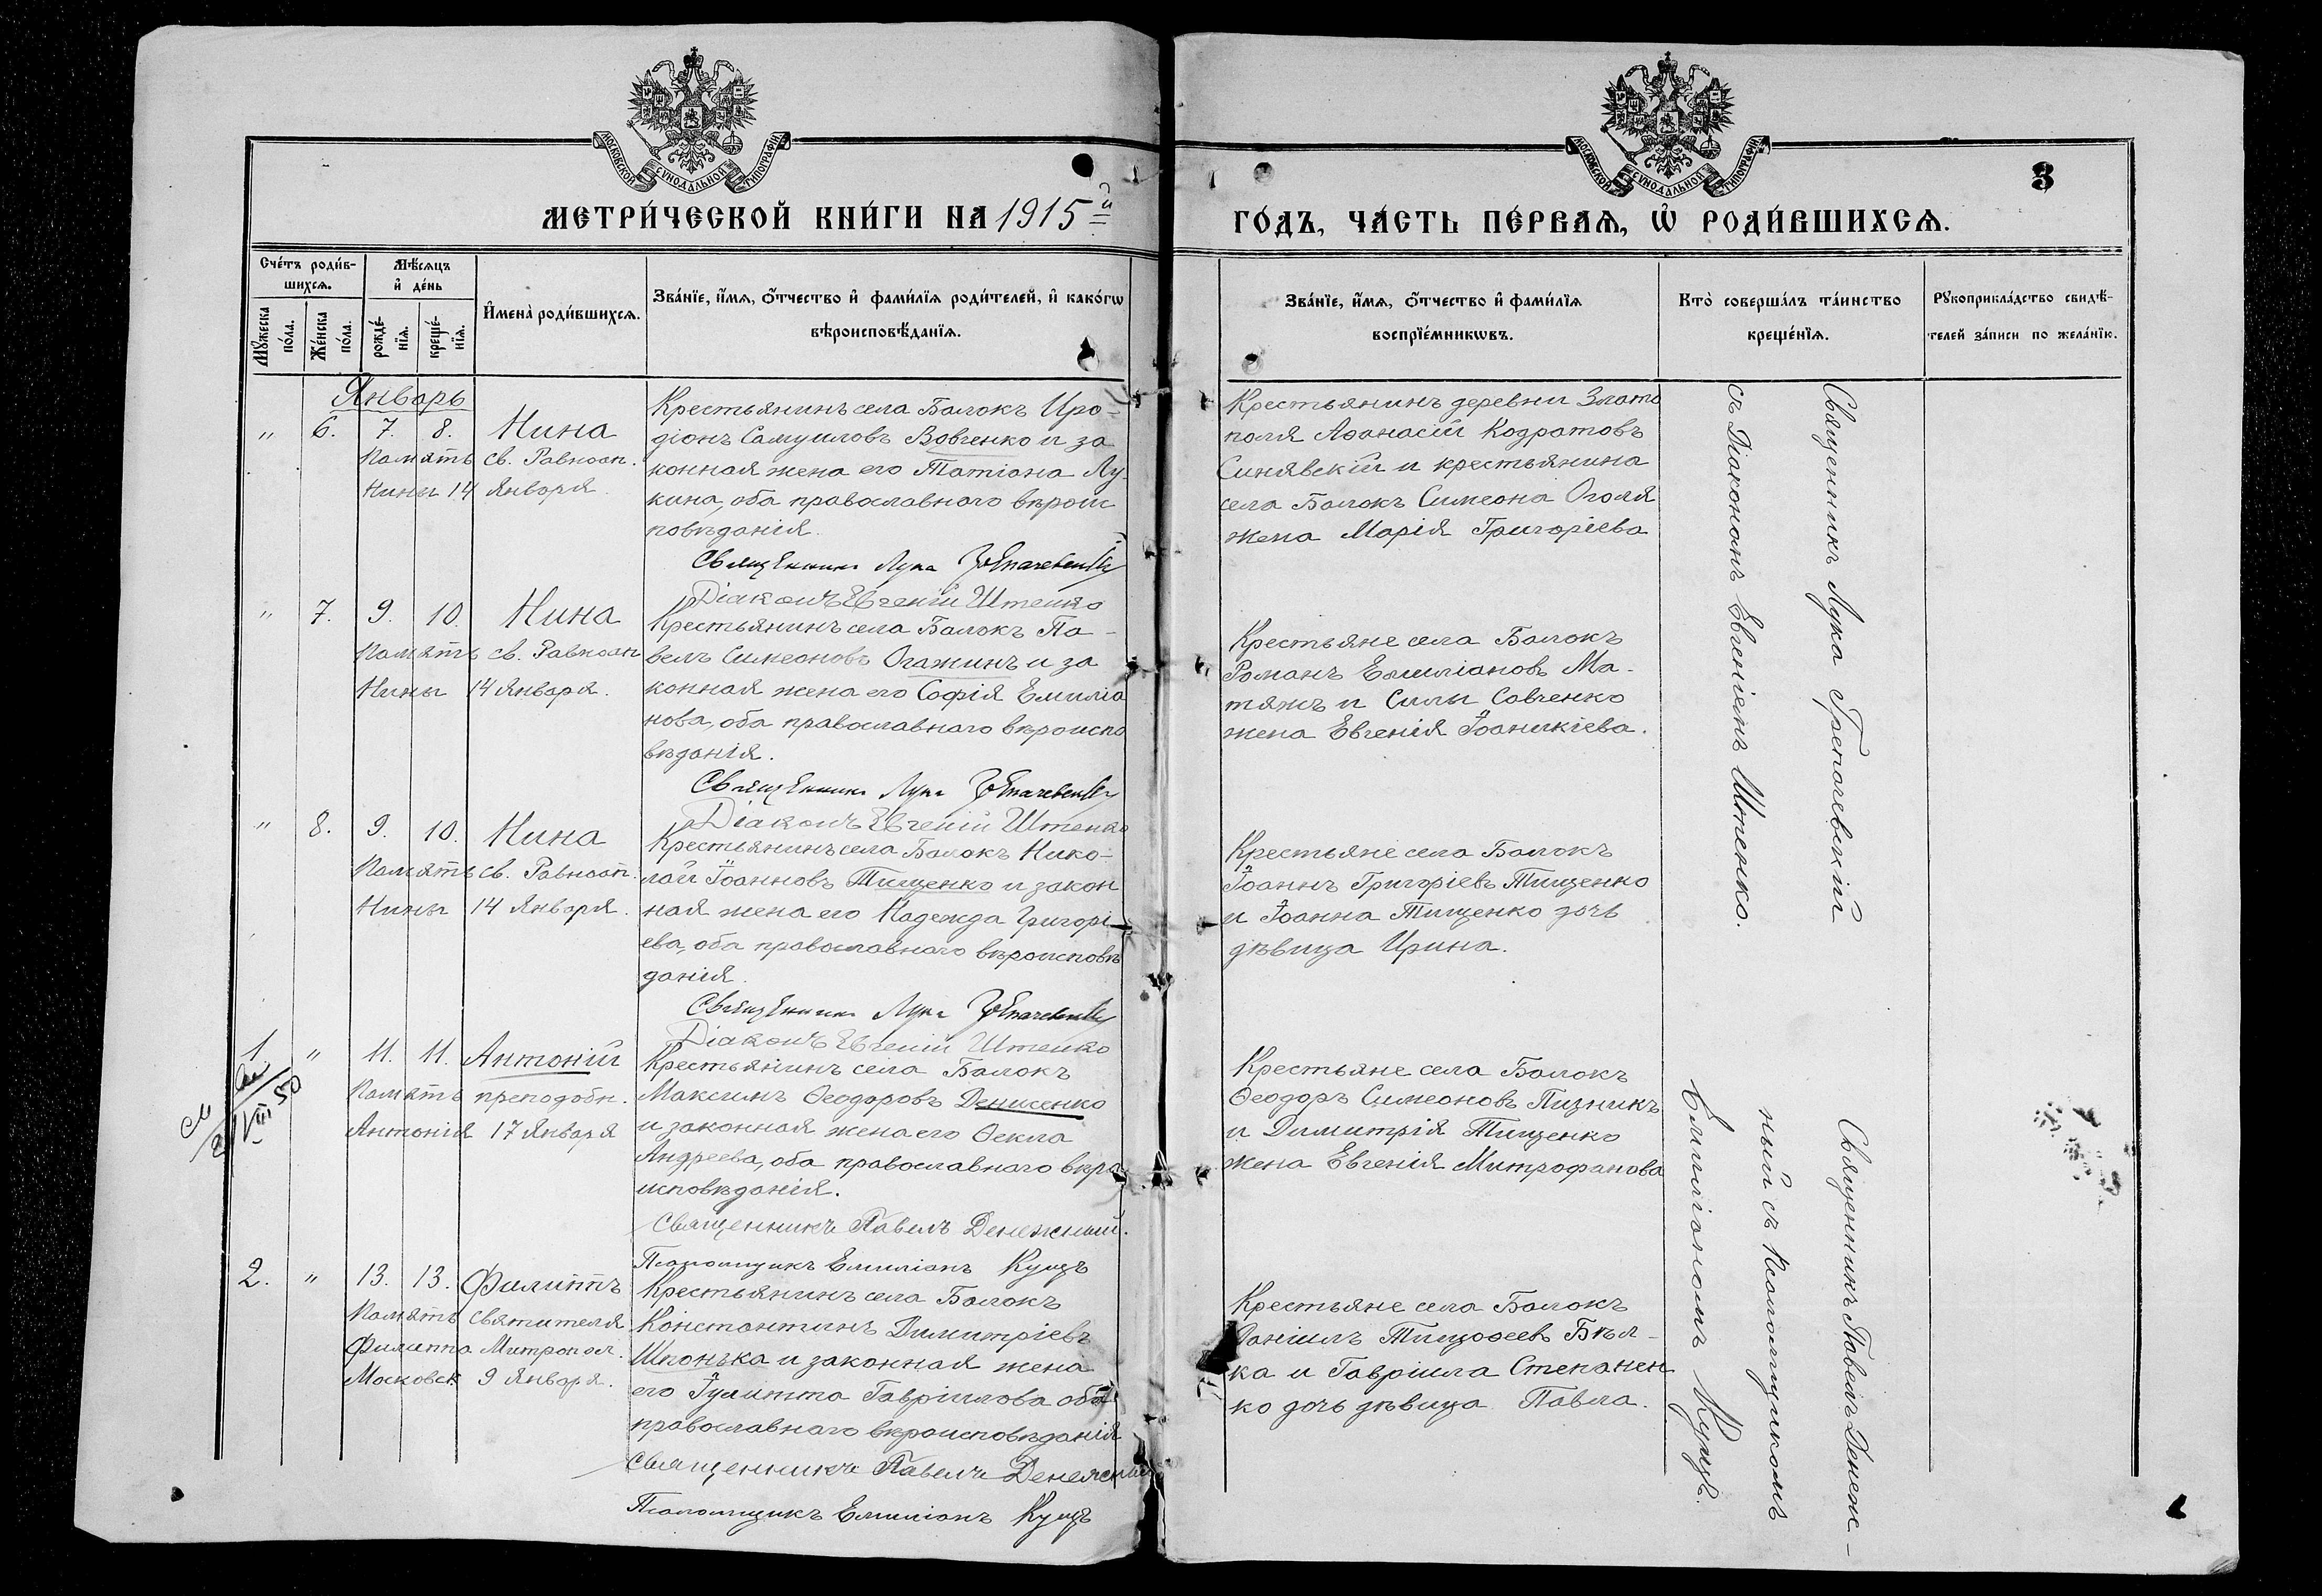 МОСКОВСКОЙ СѴНОДАЛЬНОЙ ТИПОГРАФІИ
МОСКОВСКОЙ СѴНОДАЛЬНОЙ ТИПОГРАФІИ
3
МЕТРИ́ЧЕСКОЙ КНИ́ГИ НА 1915й
ГО́ДЪ, ЧА́СТЬ ПЕ́РВАЯ, Ѡ҆ РОДИ́ВШИХСЯ.
Сче́тъ роди́в-
шихсѧ.
Мꙋ́жеска
по́ла.
Же́нска
по́ла.
Мѣ́сѧцъ
и҆ де́нь
рожде́-
нїѧ.
креще́-
нїѧ.
И҆мена̀ роди́вшихсѧ.
Зва́нїе, и҆́мѧ, ѻ҆́тчество и҆ фами́лїѧ роди́телей, и҆ како́гѡ
вѣроисповѣ́данїѧ.
Зва́нїе, и҆́мѧ, ѻ҆́тчество и҆ фами́лїѧ
воспрїе́мникѡвъ.
Кто̀ соверша́лъ та́инство
креще́нїѧ.
Рꙋкоприкла́дство свидѣ́-
телей за́писи по жела́нїю.
Январь
" 6. 7. 8. Нина
Память св. Равноап.
Нины 14 Января.
Крестьянинъ села Балокъ Иро-
діонъ Самуиловъ Вовченко и за
конная жена его Татіана Лу-
кина, оба православнаго вѣроис
повѣданія.
Священникъ Лука
Діаконъ Евгеній Штенко
Крестьянинъ деревни Злато
поля Аѳанасій Кодратовъ
Синявскій и крестьянина
села Балокъ Симеона Оголя
жена Марія Григоріева
Священникъ Лука
съ Діакономъ Евгеніемъ Штенко.
" 7. 9. 10. Нина
Память св. Равноап
Нины 14 Января.
Крестьянинъ села Балокъ Па-
велъ Симеоновъ Огажинъ и за
конная жена его Софія Емиліа
нова, оба православнаго вѣроиспо
вѣданія.
Священникъ Лука
Діаконъ Евгеній Штенко
Крестьяне села Балокъ
Романъ Емиліановъ Ма-
тяжъ и Силы Совченко
жена Евгенія Іоаникіева.
" 8. 9. 10. Нина
Память св. Равноап.
Нины 14 Января.
Крестьянинъ села Балокъ Нико-
лай Іоанновъ Тищенко и закон
ная жена его Надежда Григорі-
ева, оба православнаго вѣроисповѣ
данія.
Священникъ Лука
Діаконъ Евгеній Штенко
Крестьяне села Балокъ
Іоаннъ Григоріевъ Тищенко
и Іоанна Тищенко дочь
дѣвица Ирина.
1. " 11. 11. Антоній
VIII 50
Память преподобн.
Антонія 17 Января
Крестьянинъ села Балокъ
Максимъ Ѳеодоровъ Денисенко
и законная жена его Ѳекла
Андреева, оба православнаго вѣро
исповѣданія.
Священникъ Павелъ Денежный.
Псаломщикъ Емиліанъ Куцъ
Крестьяне села Балокъ
Ѳеодоръ Симеоновъ Пизникъ
и Димитрія Тищенко
жена Евгенія Митрофанова
Священникъ Павелъ Денеж-
ный съ Псаломщикомъ
Емиліаномъ Куцъ.
2. " 13. 13. Филиппъ
Память Святителя
Филиппа Митропол.
Московск. 9 Января.
Крестьянинъ села Балокъ
Константинъ Димитріевъ
Шпонька и законная жена
его Іулитта Гавріилова оба
православнаго вѣроисповѣданія
Священникъ Павелъ Денежный
Псаломщикъ Емиліанъ Куцъ
Крестьяне села Балокъ
Даніилъ Тимоѳеевъ Бѣл-
ка и Гавріила Степанен
ко дочь дѣвица Павла.